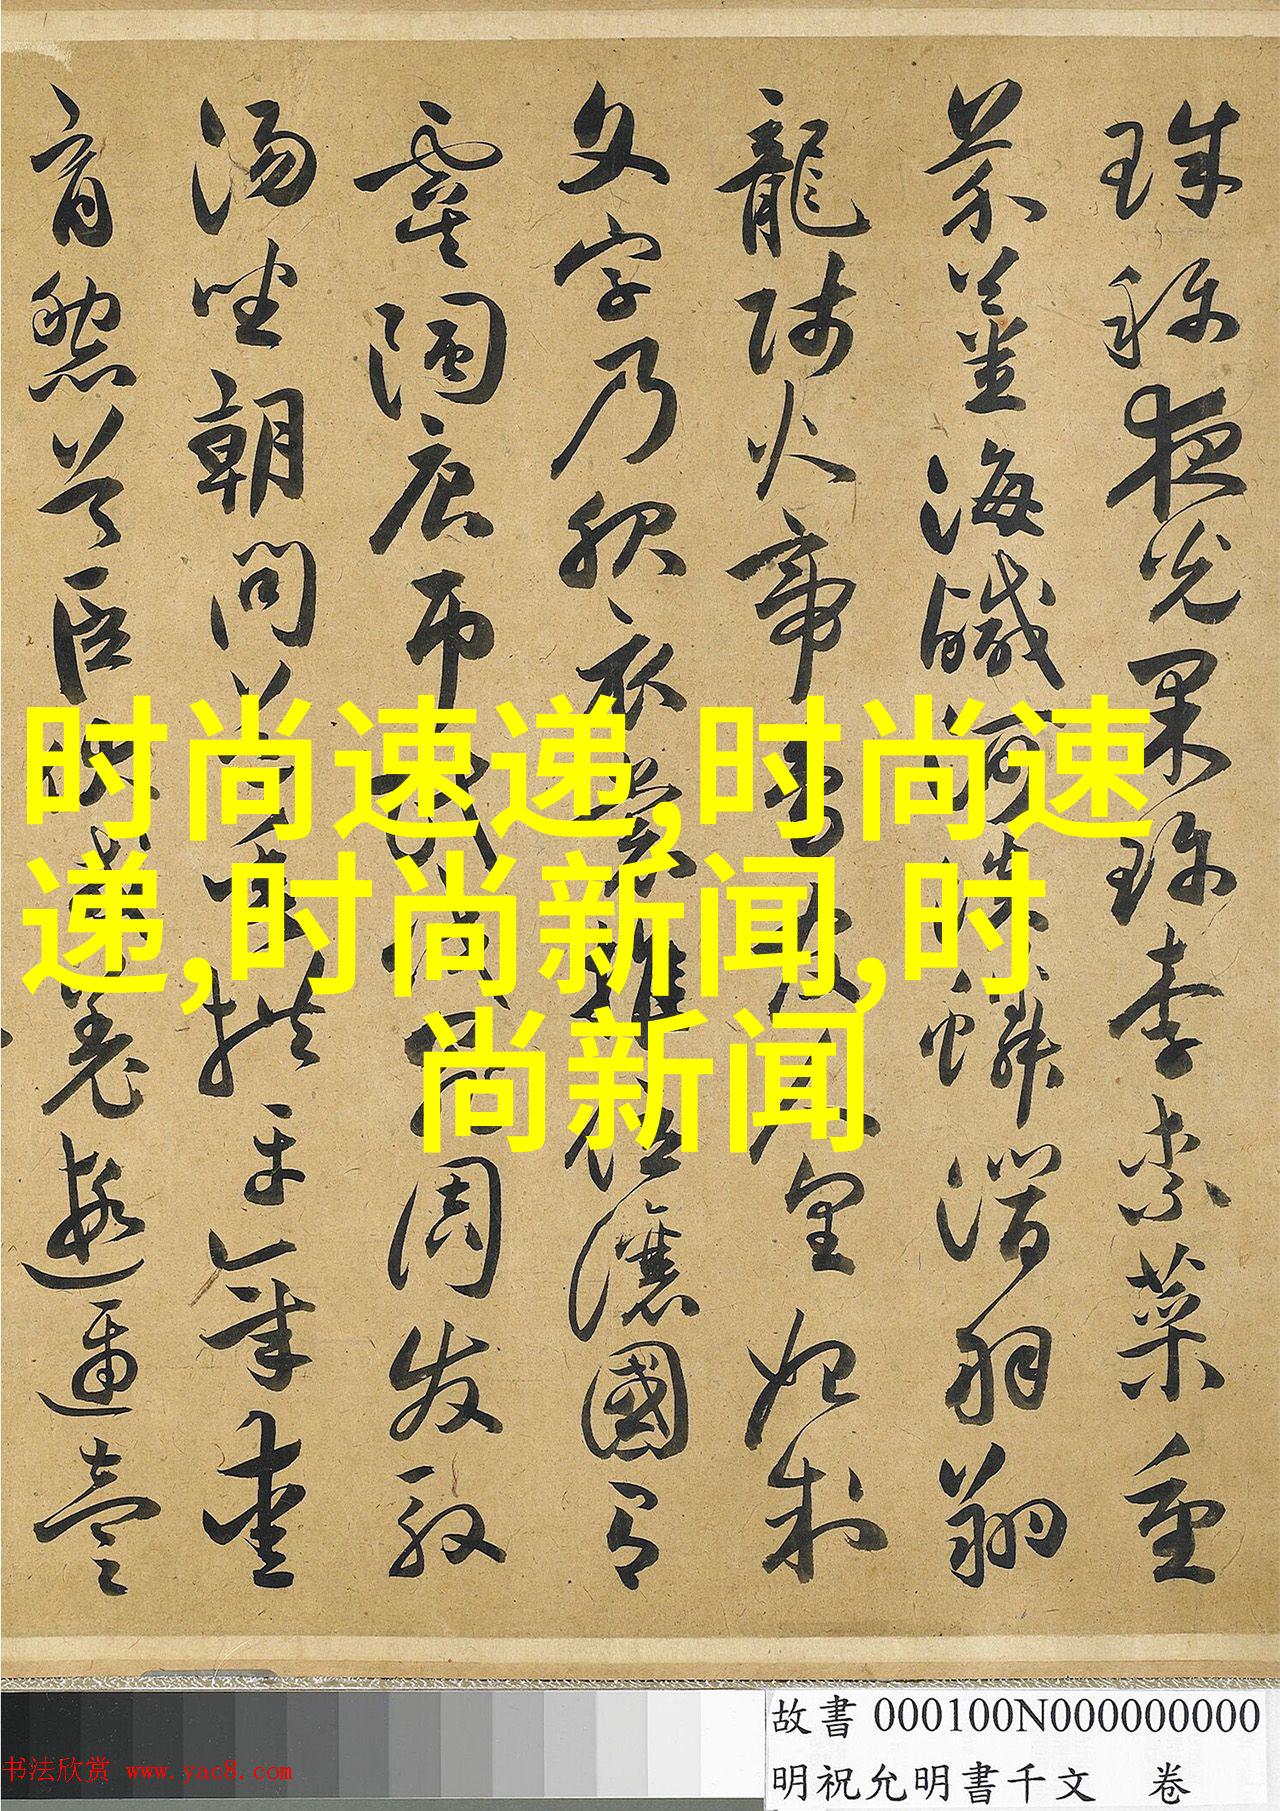 珠稱夜光果珍李柰菜重
芥薑海鹹河淡鱗潛羽翔
龍師火帝鳥官人皇始制
文字乃服衣裳推位讓國有
虞陶唐弔民伐罪周發殷
湯坐朝問道垂拱平章愛
育黎首臣伏戎羌遐邇壹
时尚速递,时尚速
递,时尚新闻,时
尚新闻
故書 000100N000000000
明祝允明書千文 卷
书法欣赏 www.yac8.com